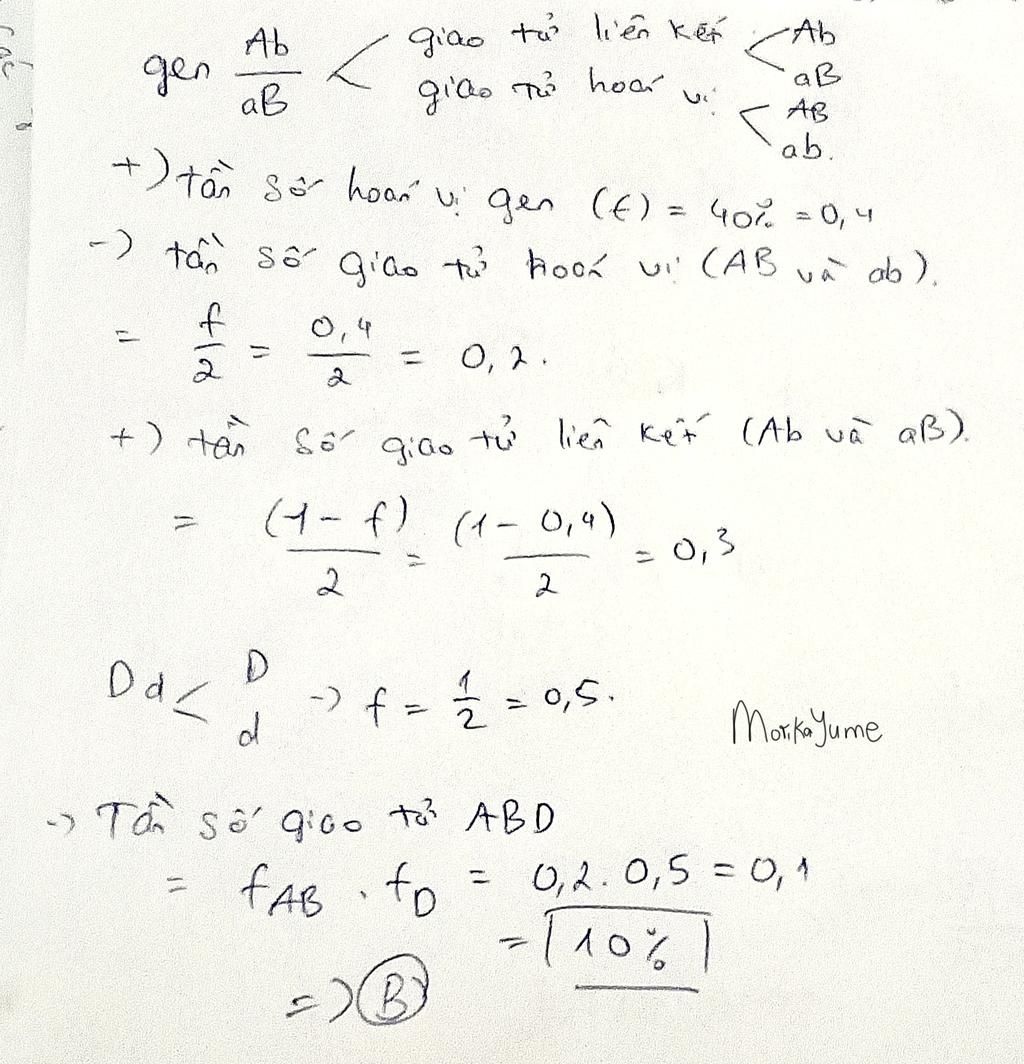 gen Ab/aB < giao tử liên kết < Ab
aB
giao tử hoán vị < AB
ab.
+) tần số hoán vị gen (f) = 40% = 0,4
-> tần số giao tử hoán vị (AB và ab).
= f/2 = 0,4/2 = 0,2.
+) tần số giao tử liên kết (Ab và aB).
= (1-f)/2 = (1-0,4)/2 = 0,3
Dd < D
d -> f = 1/2 = 0,5.
MorikaYume
-> Tần số giao tử ABD
= fAB . fD = 0,2 . 0,5 = 0,1
= 10%
=> B